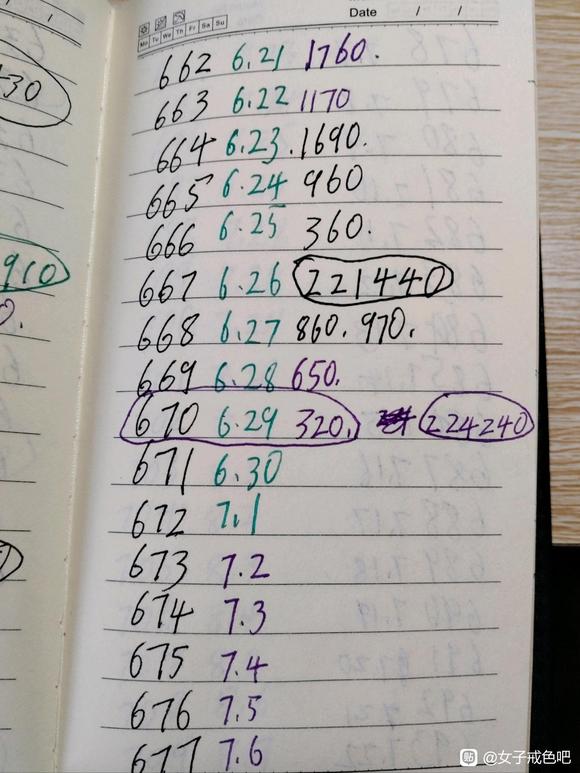 Date / /
Mo Tu We Th Fr Sa Su
662 6.21 1760.
430
663 6.22 1170
664 6.23 .1690.
665 6.24 960
666 6.25 360.
910
667 6.26 221440
668 6.27 860. 970.
669 6.28 650.
670 6.29 320. 224240
671 6.30
672 7.1
673 7.2
674 7.3
675 7.4
676 7.5
677 7.6
贴 @女子戒色吧